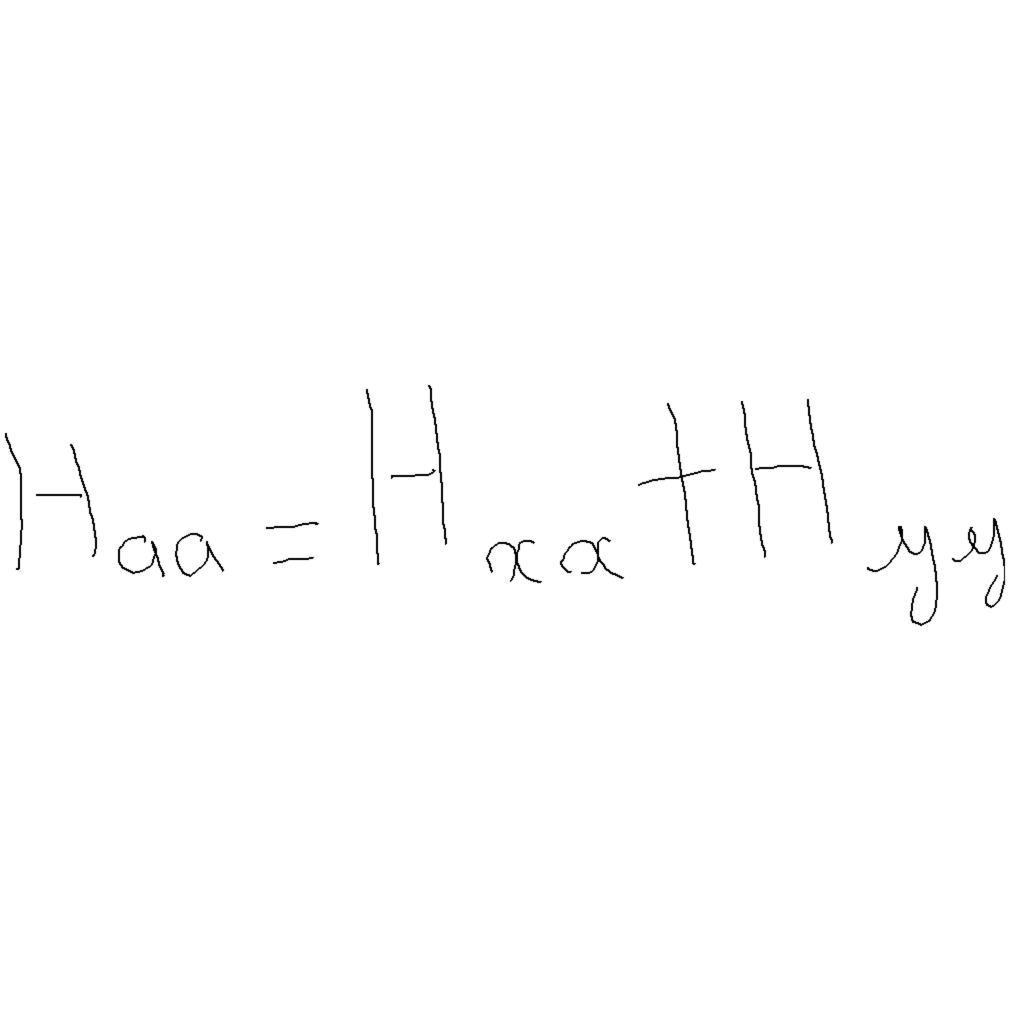 H_{aa} = H_{xx} + H_{yy}